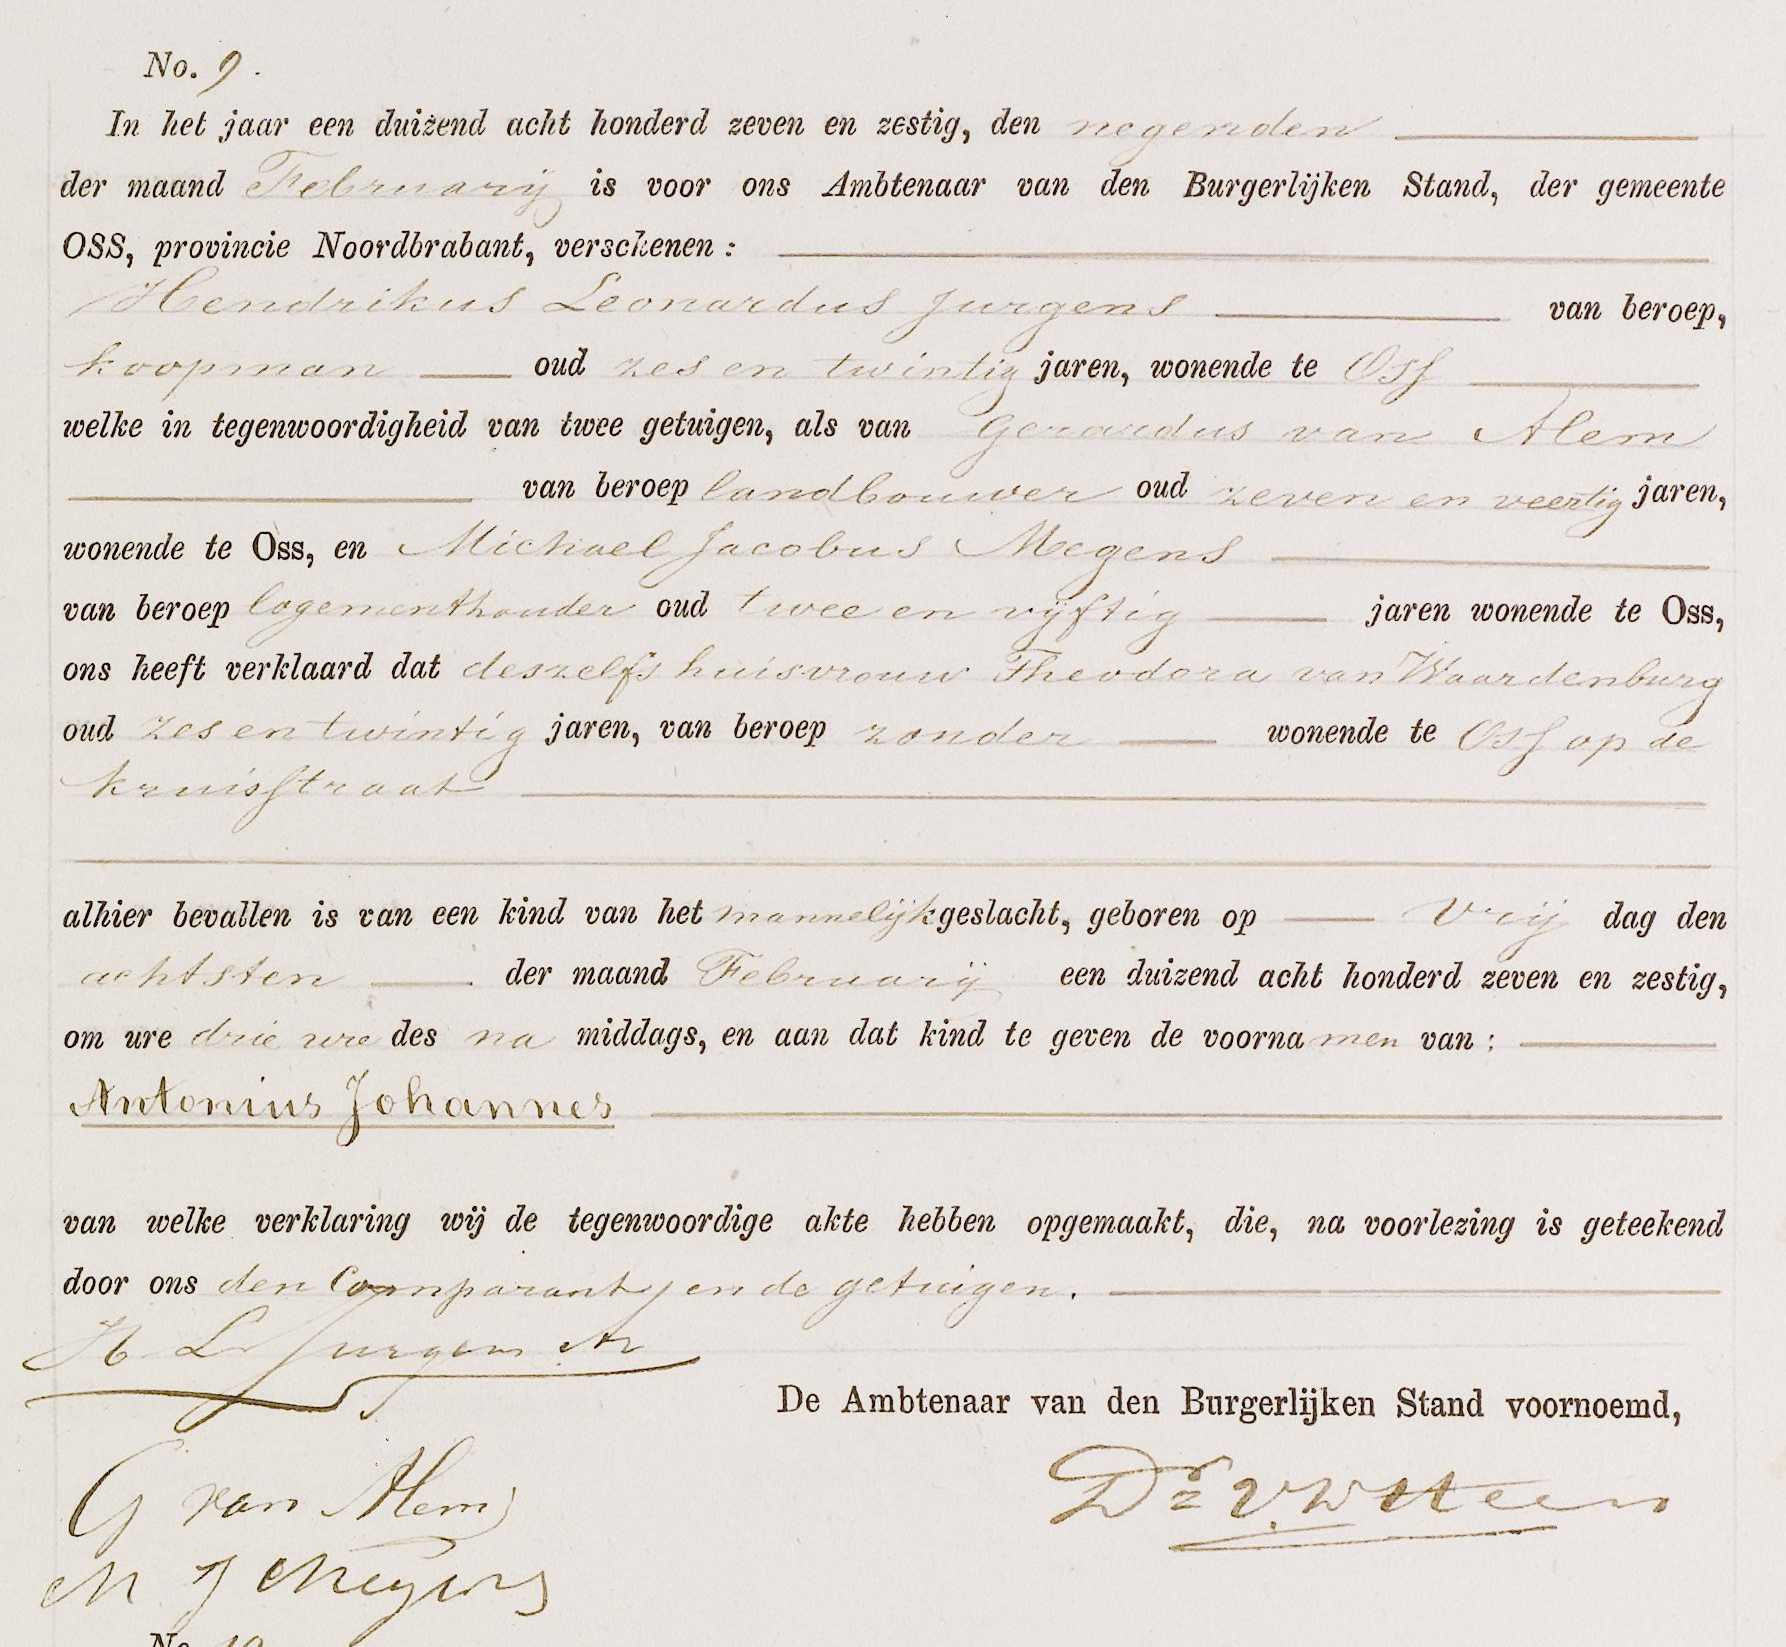 No. 9.
In het jaar een duizend acht honderd zeven en zestig, den negenden
der maand Februarij is voor ons Ambtenaar van den Burgerlijken Stand, der gemeente
OSS, provincie Noordbrabant, verschenen:
Hendrikus Leonardus Jurgens van beroep,
koopman oud zes en twintig jaren, wonende te Oss
welke in tegenwoordigheid van twee getuigen, als van Gerardus van Alem
van beroep landbouwer oud zeven en veertig jaren,
wonende te Oss, en Michael Jacobus Megens
van beroep logementhouder oud twee en vijftig jaren wonende te Oss,
ons heeft verklaard dat deszelfs huisvrouw Theodora van Waardenburg
oud zes en twintig jaren, van beroep zonder wonende te Oss op de
kruisstraat
alhier bevallen is van een kind van het mannelijk geslacht, geboren op Vrij dag den
achtsten der maand Februarij een duizend acht honderd zeven en zestig,
om ure drie ure des na middags, en aan dat kind te geven de voorna men van:
Antonius Johannes
van welke verklaring wij de tegenwoordige akte hebben opgemaakt, die, na voorlezing is geteekend
door ons den Comparant, en de getuigen.
H L Jurgens
De Ambtenaar van den Burgerlijken Stand voornoemd,
G van Alem
Dr
M J Megens
No. 10